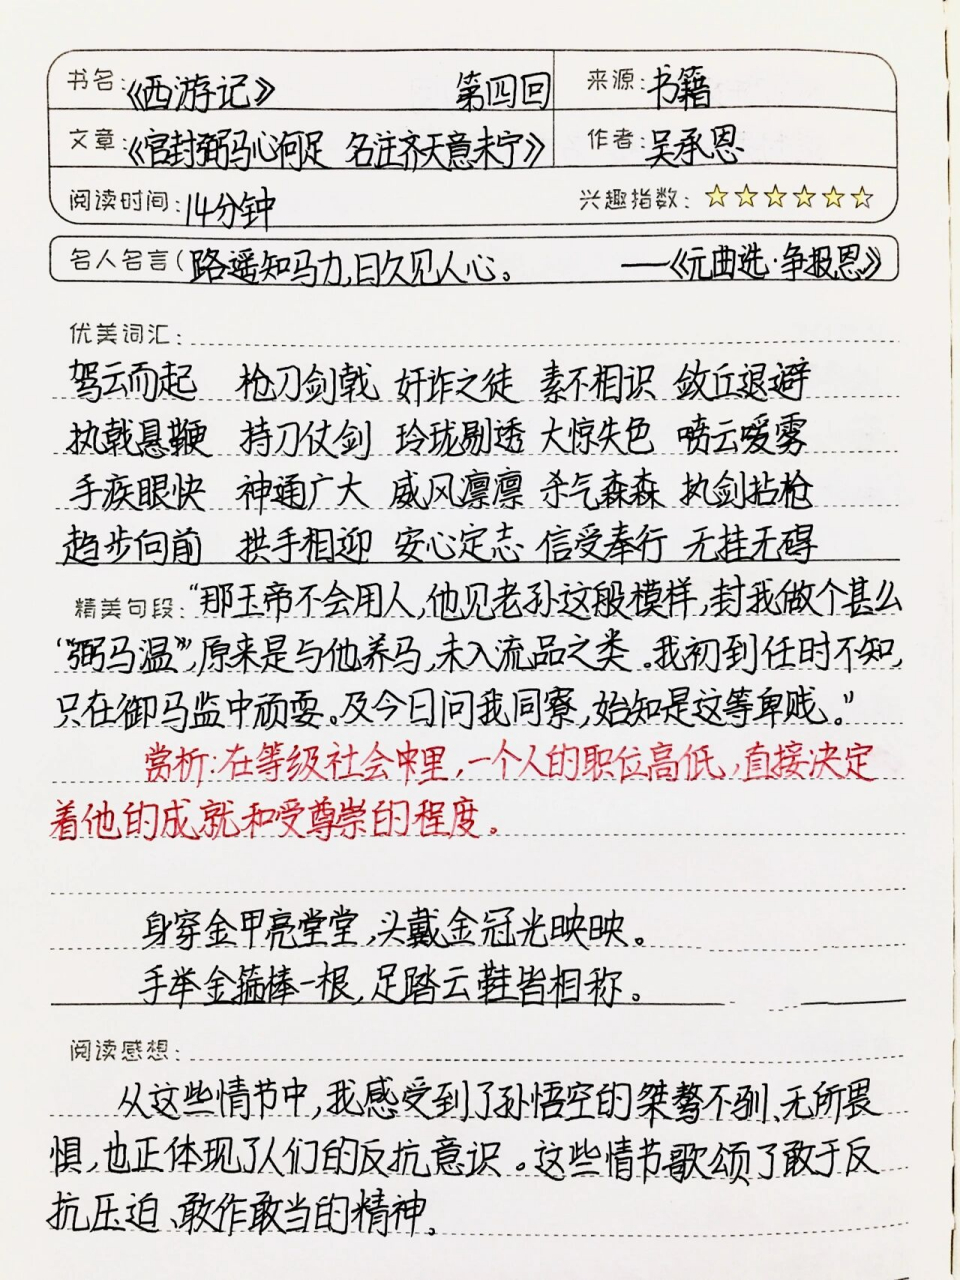 书名:《西游记》 第四回 来源:书籍
文章:《官封弼马心何足 名注齐天意未宁》 作者:吴承恩
阅读时间:14分钟 兴趣指数:☆☆☆☆☆☆
名人名言( 路遥知马力,日久见人心。 ——《元曲选·争报恩》
优美词汇:
驾云而起 枪刀剑戟 奸诈之徒 素不相识 敛兵退避
执戟悬鞭 持刀仗剑 玲珑剔透 大惊失色 喷云嗳雾
手疾眼快 神通广大 威风凛凛 杀气森森 执剑拈枪
趋步向前 拱手相迎 安心定志 信受奉行 无挂无碍
精美句段:“那玉帝不会用人,他见老孙这般模样,封我做个甚么
‘弼马温’,原来是与他养马,未入流品之类。我初到任时不知,
只在御马监中顽耍。及今日问我同寮,始知是这等卑贱。”
赏析:在等级社会中里,一个人的职位高低,直接决定
着他的成就和受尊崇的程度。
身穿金甲亮堂堂,头戴金冠光映映。
手举金箍棒一根,足踏云鞋皆相称。
阅读感想:
从这些情节中,我感受到了孙悟空的桀骜不驯、无所畏
惧,也正体现了人们的反抗意识。这些情节歌颂了敢于反
抗压迫、敢作敢当的精神。